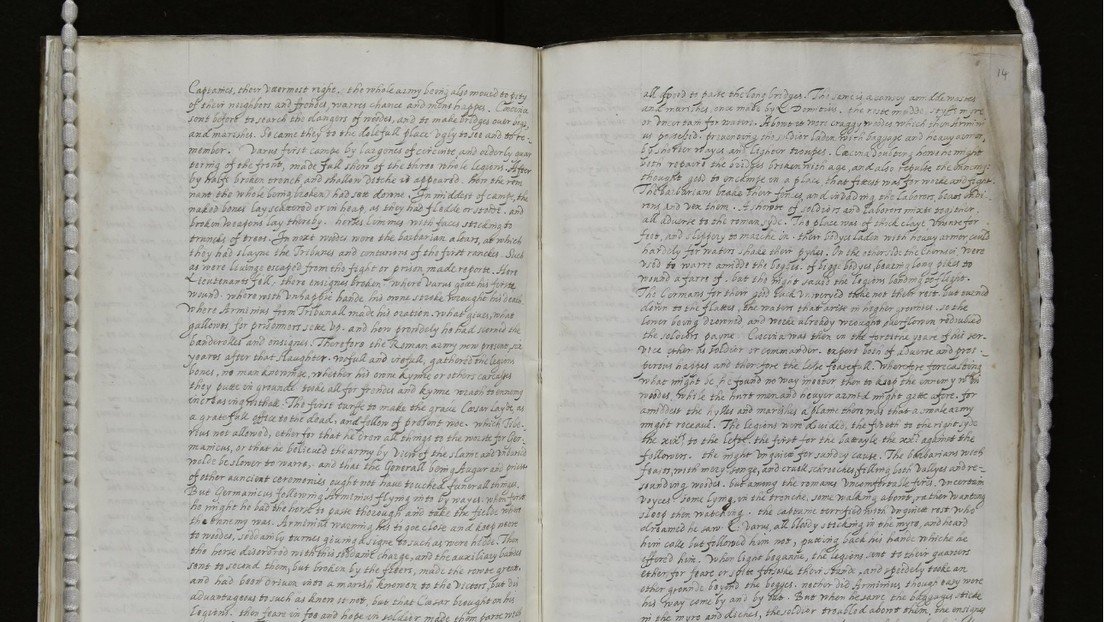 Captaines, their uttermost right. the whole army being also moved to pity
of their neighbors and frendes warres chance and mens happes. Cæcina
sent before to search the dangers of wodes, and to make bridges over bogs
and marishes. So came they to the dolefull place ugly to see and to re-
member. Varus first campe by largenes of circuite and orderly quar
tering of the front, made full shew of the three whole legions. After
by halfe broken trench and shallow ditche it appeared. how the rem
nant the whole being broken, had sett downe. In middest of campe, the
naked bones lay scattered or in heap, as they had fledde or stode. and
broken weapons lay thereby. horses limmes with faces sticking to
trunckes of trees. In next wodes were the barbarian altars, at which
they had slayne the Tribunes and centurions of the first ranckes. Such
as were livinge escaped from the fight or prison made reporte. Here
Lieutenants fell, there ensignes broken. where Varus gott his first
wound. where with unhappie hande his owne stroke wrought his death
where Arminius from Tribunall made his oration. What gives, what
gallowes for prisoners sette up. and how prowdely he had scorned the
banderolles and ensignes. Therefore the Roman army now present, six
yeares after that slaughter. wofull and irefull, gathered the legions
bones, no man knowing, whether his owne kynne or others carcases
they putte in grounde. tooke all for frendes and kynne wrath to ennemy
increasing withall. The first turfe to make the grave Cæsar layde, as
a gratefull office to the dead, and fellow of present woe. which Tibe-
rius not allowed, ether for that he tron all things to the worste for Ger-
manicus, or that he believed the army by view of the slaine and unburied
wolde be slower to warre, and that the Generall being Augur and priest
of other auncient ceremonies ought not have touched funerall things.
But Germanicus following Arminius flying into by wayes. when first
he might he bad the horse to passe thorough and take the fielde where
the ennemy was. Arminius warning his to goe close and keep neere
to wodes, soddainly turnes giving a signe to such as were hidde. Then
the horse disordred with this soddaine charge, and the auxiliary bandes
sent to second them, but broken by the fleers, made the route great.
and had been driven into a marish knowen to the victors, but dis
advantageous to such as knew it not, but that Cæsar brought on his
legions. then feare in foe and hope in soldier made them parte with
14
all speed to passe the long bridges. The sence is a narrow amidde wastes
and marishes once made by L Domitius, the reste muddie, styffe myre
or uncertain for waters. About it were craggy wodes which then Armini
us possessed. preventing the soldier laden with baggage and heavy armor,
by shorter wayes and lighter troupes. Cæcina douting how he might
both repaire the bridges broken with age, and also repulse the ennemy:
thought good to encampe in a place, that fittest was for worke and fight.
The barbarians brake their forces, and invading the laborers, beset envi-
rons and vex them. A horrour of soldiers and laborers mixt together,
all adverse to the roman syde. The place was of thick claye unsure for
fete, and slippery to marche in. their bodyes laden with heavy armor, could
hardely for waters shake their pykes. On the other side the Cherusci were
used to warre amidde the bogges. of bigge bodyes, bearing long pikes to
wound a farre of. but the night saved the legions bending to flight.
The Germans for their good luck unweryed toke not their rest. but turned
down to the flattes, the waters that arise in higher growndes. So the
lower being drowned and worke already wrought overflowen redoubled
the soldiers payne. Cæcina was then in the fortithe yeare of his ser-
vice ether as soldier or commander. expert both of adverse and pros-
perous happes and therfore the lesse fearefull. Wherefore forecasting
what might be, he found no way meeter then to keep the ennemy wthin
wodes, while the hurt men and heavyer armed might gette afore. for
amiddest the hylles and marishes a plaine there was that a weake army
might receave. The legions were devided, the fifteth to the right syde
the xxith to the lefte. the first for the battayle the xxth against the
followers. the night unquiet for sundry cause. The barbarians with
feasts, with mery songe, and cruell scrooches, filling both vallyes and re-
sounding wodes. but among the romans uncomfortable fires, uncertain
voyces some lying in the trenche, some walking about, rather wanting
sleep then watching. the captaine terrified with unquiet rest who
dreamed he saw Q. Varus all bloody sticking in the myre, and heard
him calle but followed him not, putting back his hande which he
offered him. When light beganne, the legions sent to their quarters
ether for feare or spite forsake their stand, and spedely tooke an
other grounde beyond the bogges. nether did Arminius though easy were
his way come by and by out. But when he sawe the baggages sticke
in the myre and diches, the soldier troubled about them, the ensignes